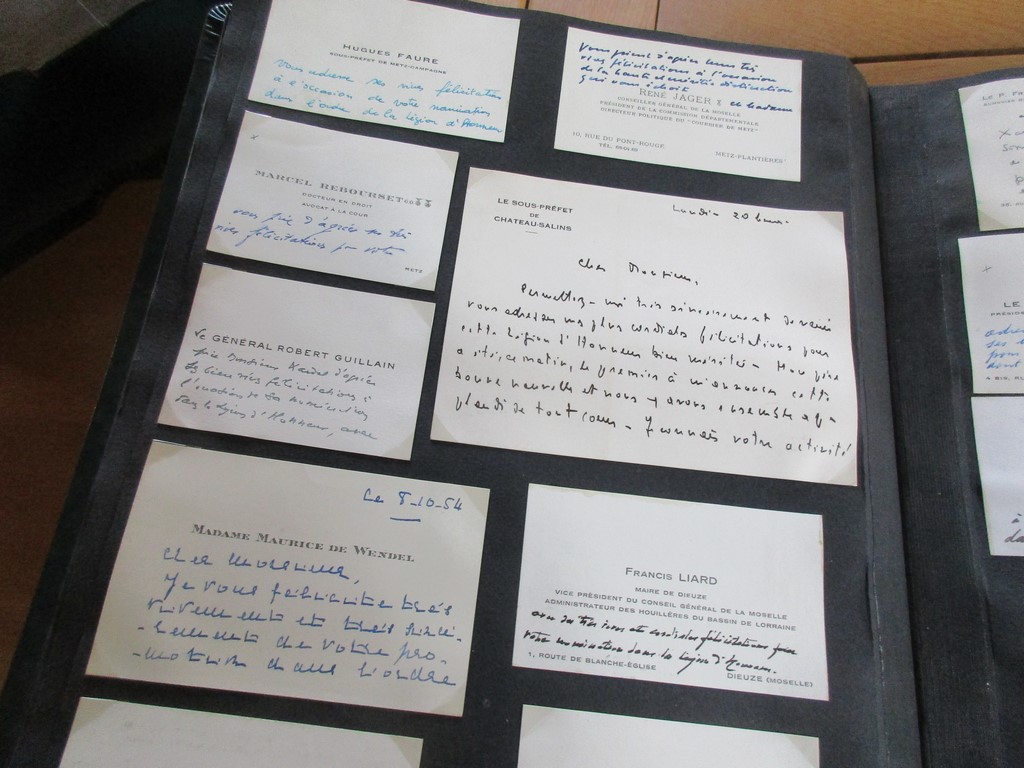 HUGUES FAURE
SOUS-PRÉFET DE METZ-CAMPAGNE
vous adresse ses vives félicitations
à l'occasion de votre nomination
dans l'ordre de la Légion d'Honneur
Vous prient d'agréer leurs très
vives félicitations à l'occasion
de la haute et méritée distinction
qui vous échoit
RENÉ JAGER et Madame
CONSEILLER GÉNÉRAL DE LA MOSELLE
PRÉSIDENT DE LA COMMISSION DÉPARTEMENTALE
DIRECTEUR POLITIQUE DU "COURRIER DE METZ"
10, RUE DU PONT-ROUGE
TÉL.
METZ-PLANTIÈRES
MARCEL REBOURSET
DOCTEUR EN DROIT
AVOCAT À LA COUR
vous prie d'agréer
vives félicitations pour votre
METZ
LE SOUS-PRÉFET
DE
CHATEAU-SALINS
Lundi 20
Cher Monsieur,
Permettez-moi très sincèrement de venir
vous adresser mes plus cordiales félicitations pour
cette Légion d'Honneur bien méritée - Mon père
a été, ce matin, le premier à m'annoncer cette
bonne nouvelle et nous y avons ensemble
plaudi de tout coeur - Je connais votre activité
Le GÉNÉRAL ROBERT GUILLAIN
prie Monsieur d'agréer
ses bien vives félicitations à
l'occasion de sa nomination
dans la Légion d'Honneur, avec
Le 8-10-54
MADAME MAURICE DE WENDEL
Cher Monsieur,
Je vous félicite très
vivement et très sincè-
-rement de votre pro-
-motion dans l'ordre
FRANCIS LIARD
MAIRE DE DIEUZE
VICE PRÉSIDENT DU CONSEIL GÉNÉRAL DE LA MOSELLE
ADMINISTRATEUR DES HOUILLÈRES DU BASSIN DE LORRAINE
avec ses très vives et cordiales félicitations pour
votre nomination dans la Légion d'Honneur.
1, ROUTE DE BLANCHE-ÉGLISE
DIEUZE (MOSELLE)
LE P.
LE